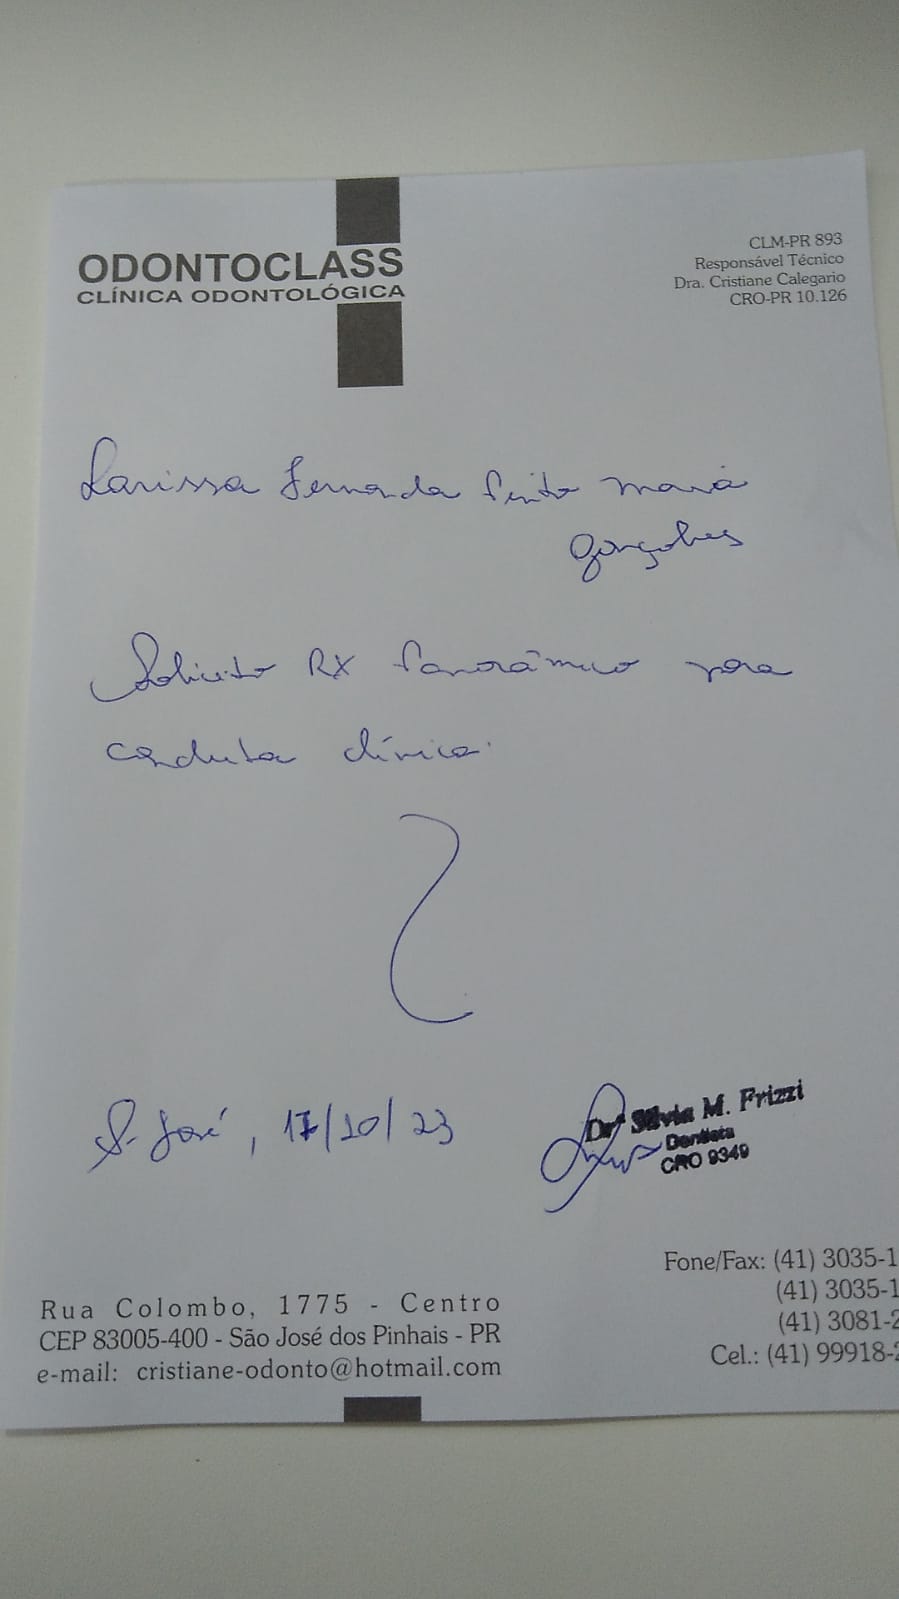 ODONTOCLASS
CLÍNICA ODONTOLÓGICA
CLM-PR 893
Responsável Técnico
Dra. Cristiane Calegario
CRO-PR 10.126
Larissa Fernanda Pinto
Gonçalves
Solicito RX Panorâmico para
conduta clínica.
S. José, 17/10/23
Drª Silvia M. Frizzi
Dentista
CRO 9349
Rua Colombo, 1775 - Centro
CEP 83005-400 - São José dos Pinhais - PR
e-mail: cristiane-odonto@hotmail.com
Fone/Fax: (41) 3035-1
(41) 3035-1
(41) 3081-2
Cel.: (41) 99918-2